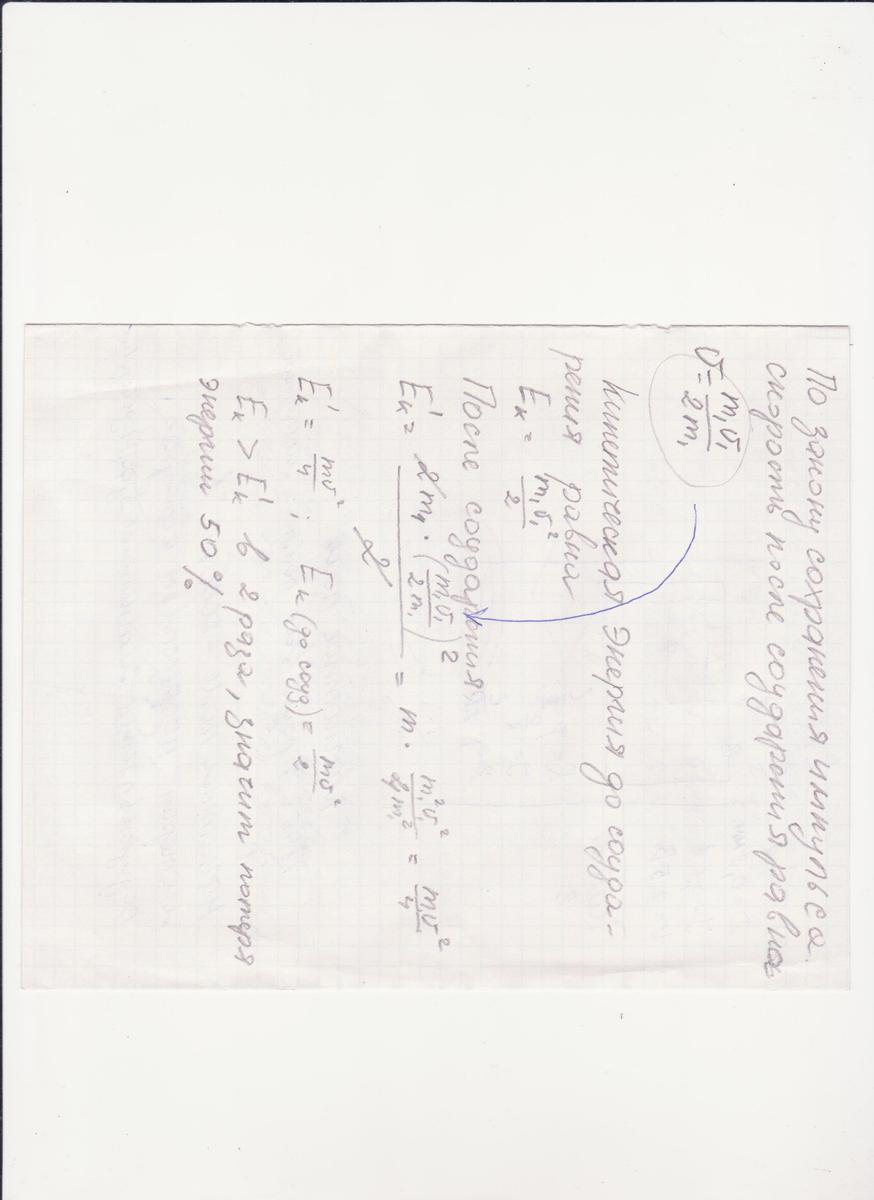 По закону сохранения импульса
скорость после соударения равна
υ = m₁υ₁ / 2m₁
Кинетическая энергия до соуда-
рения равна
Eк = m₁υ₁² / 2
После соударения
E'к = 2m₁ · (m₁υ₁ / 2m₁)² / 2 = m · m₁²υ₁² / 4m₁² = mυ² / 4
E'к = mυ² / 4 ; Eк (до соуд) = mυ² / 2
Eк > E'к в 2 раза, значит потеря
энергии 50%